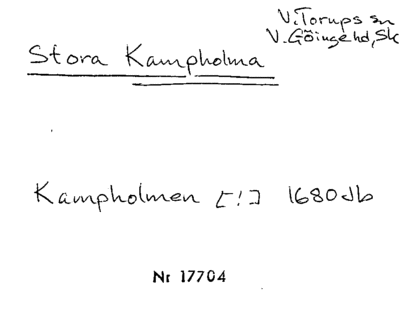 V. Torups sn
V. Göinge hd, Sk
Stora Kampholma
Kampholmen [!] 1680 Jb
Nr 17704